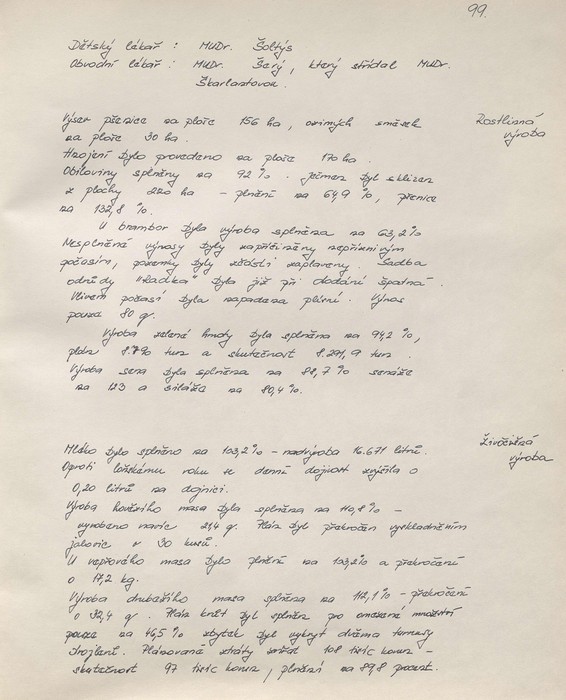 99.
Dětský lékař : MUDr. Šoltýs
Obvodní lékař : MUDr. Šerý, který střídal MUDr.
Škarlantovou.
Rostlinná
výroba
Výsev pšenice na ploše 156 ha, ozimých směsek
na ploše 30 ha.
Hnojení bylo provedeno na ploše 170 ha.
Obiloviny splněny na 92 %. Ječmen byl sklizen
z plochy 220 ha - plnění na 64,9 %, pšenice
na 132,8 %.
U brambor byla výroba splněna na 63,2 %
Nesplněné výnosy byly zapříčiněny nepříznivým
počasím, pozemky byly zčásti zaplaveny. Sadba
odrůdy "Radka" byla již při dodání špatná.
Vlivem počasí byla napadena plísní. Výnos
pouze 80 q.
Výroba zelené hmoty byla splněna na 94,2 %,
plán tun a skutečnost 8.291,9 tun.
Výroba sena byla splněna na 88,7 % senáže
na 123 a siláže na 80,4 %.
Živočišná
výroba
Mléko bylo splněno na 103,2 % - nadvýroba 16.671 litrů.
Oproti loňskému roku se denní dojivost zvýšila o
0,20 litrů na dojnici.
Výroba hovězího masa byla splněna na 110,8 % -
vyrobeno navíc 214 q. Plán byl překročen vyskladněním
jalovic v 30 kusů.
U vepřového masa bylo plnění na 103,2% a překročení
o 17,2 kg.
Výroba drůbežího masa splněna na 112,1 % - překročení
o 32,4 q. Plán byl splněn pro omezené množství
pouze na 46,5 % zbytek byl vykryt dvěma turnusy
brojlerů. Plánované ztráty 108 tisíc korun -
skutečnost 97 tisíc korun, plnění na 89,8 procent.